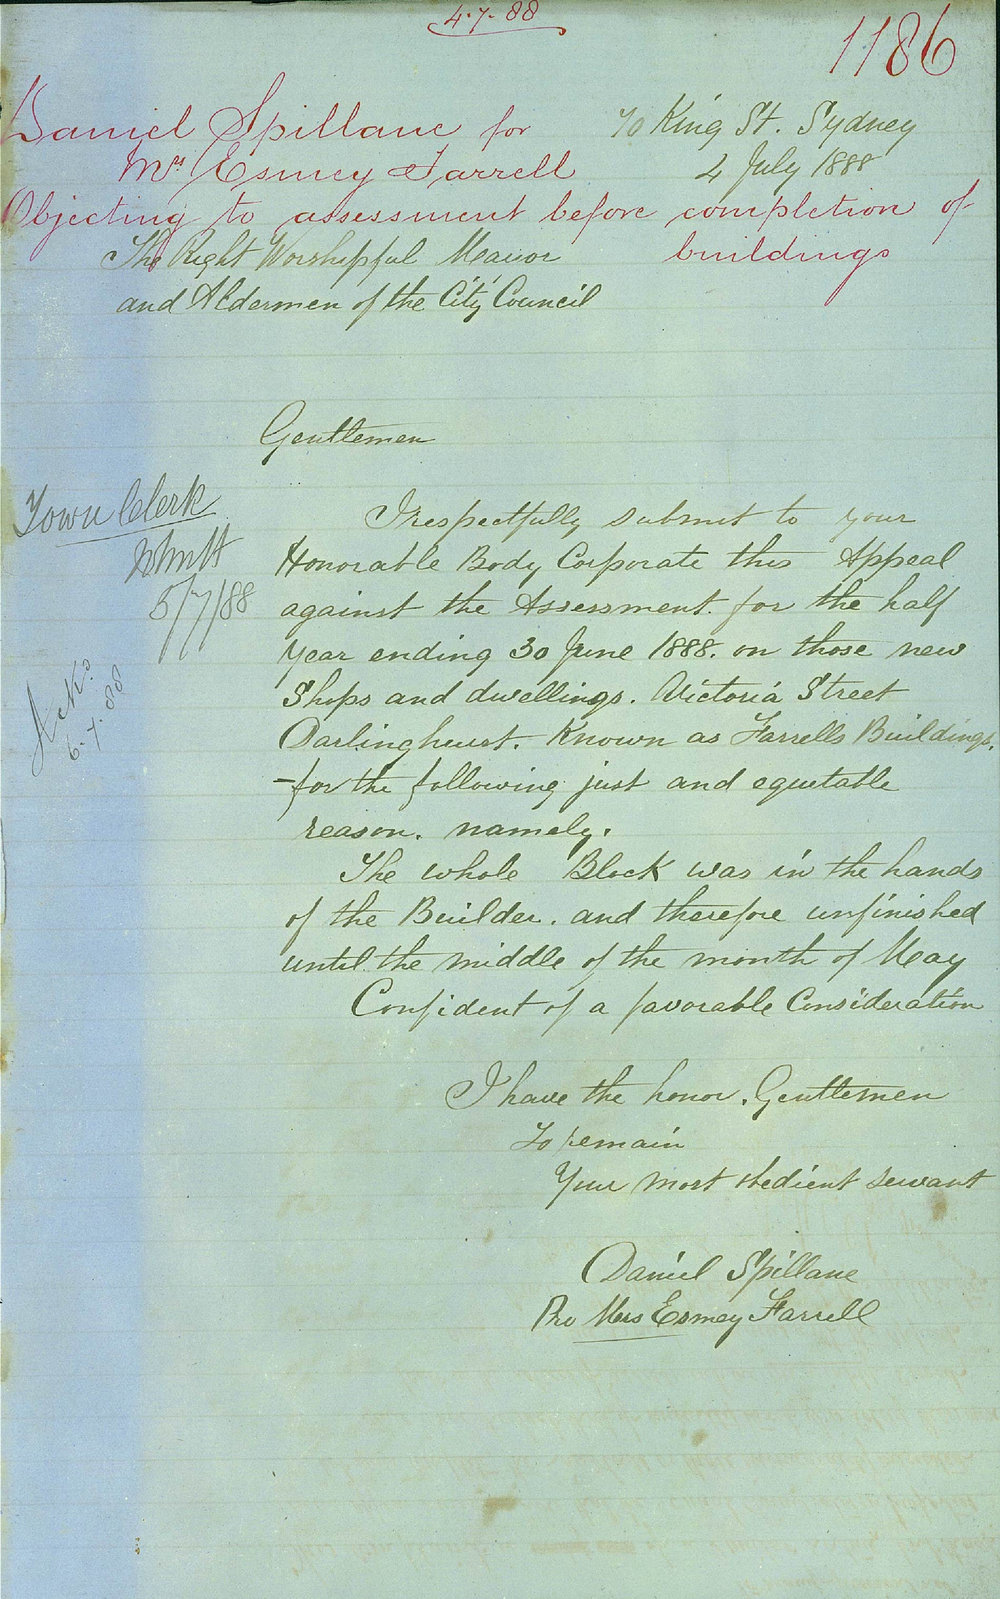 4.7.88
1186
Daniel Spillane for
Mrs Esmey Farrell
Objecting to assessment before completion of
buildings
70 King St. Sydney
4 July 1888
The Right Worshipful Mayor
and Aldermen of the City Council
Gentlemen
Town Clerk
5/7/88
Ackd
6.7.88
I respectfully submit to your
Honorable Body Corporate this Appeal
against the Assessment. for the half
Year ending 30 June 1888. on those new
Shops and dwellings. Victoria Street
Darlinghurst. Known as Farrells Buildings.
-for the following just and equitable
reason. namely.
The whole Block was in the hands
of the Builder. and therefore unfinished
until the middle of the month of May
Confident of a favorable Consideration
I have the honor. Gentlemen
To remain
Your most obedient servant
Daniel Spillane
Pro Mrs Esmey Farrell